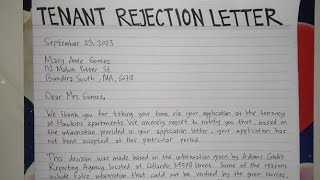 TENANT REJECTION LETTER
September 23, 2023
Mary Anne Gomez
112 Malvin Potter St
Banders South, MA, 62718
Dear Mrs. Gomez,
We thank you for taking your time via your application at the tenancy
at Hawkins apartments. We sincerely regret to notify you that, based on
the information provided in your application letter, your application has
not been accepted at this particular period.
This decision was made based on the information given by Adams Credit
Reporting Agency located at Collards 54578 Street. Some of the reasons
include false information that could not be verified by the given sources,